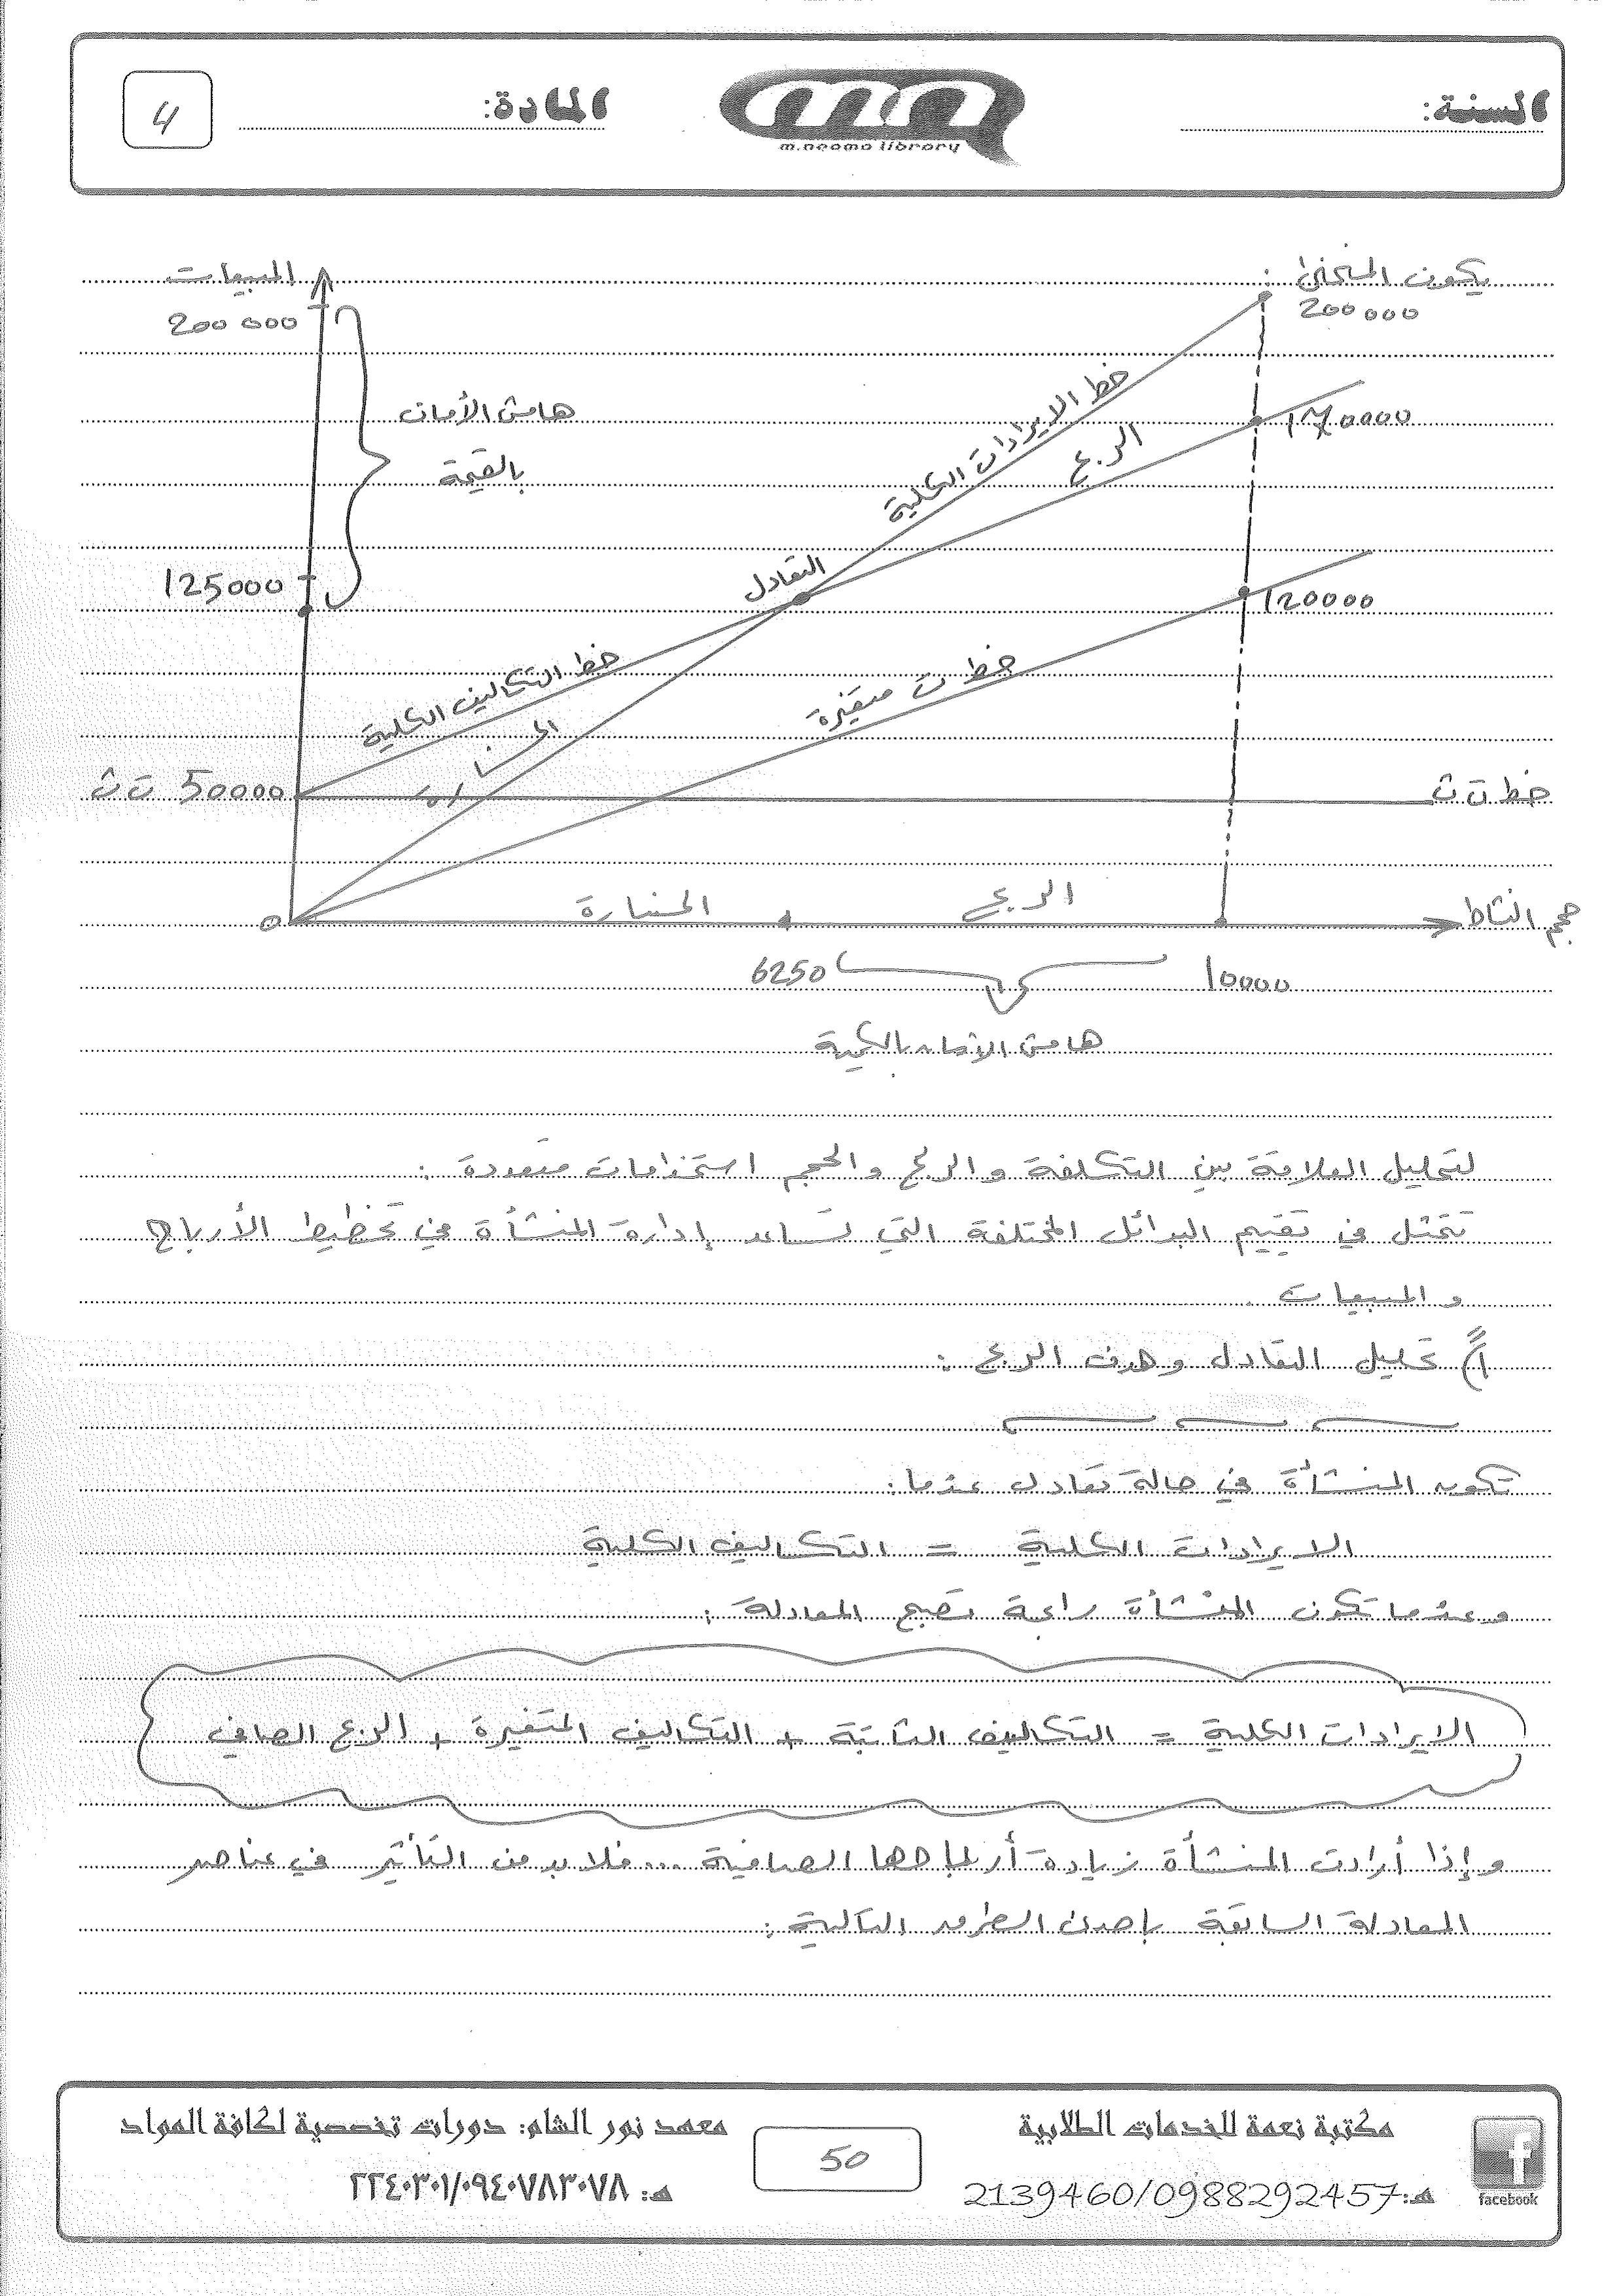 السنة:
m.neama library
المادة:
4
يكون المنحنى:
المبيعات
200 000
200 000
هامش الأمان
بالقيمة
خط الايرادات الكلية
الربح
170000
125000
التعادل
120000
خط التكاليف الكلية
خط ت متغيرة
الخسارة
50000 ت ث
خط ت ث
0
الخسارة
الربح
حجم النشاط
6250
10000
هامش الأمان بالكمية
لتحليل العلاقة بين التكلفة والربح والحجم استخدامات متعددة :
تتمثل في تقييم البدائل المختلفة التي تساعد إدارة المنشأة في تخطيط الأرباح
والمبيعات .
1) تحليل التعادل وهدف الربح :
تكون المنشأة في حالة تعادل عندما :
الايرادات الكلية = التكاليف الكلية
وعندما تكون المنشأة رابحة تصبح المعادلة :
الايرادات الكلية = التكاليف الثابتة + التكاليف المتغيرة + الربح الصافي
وإذا أرادت المنشأة زيادة أرباحها الصافية ... فلا بد من التأثير في عناصر
المعادلة السابقة بإحدى الطرق التالية :
مكتبة نعمة للخدمات الطلابية
هـ: 2139460/0988292457
facebook
50
معهد نور الشام: دورات تخصصية لكافة المواد
هـ: ٢٢٤٠٣٠١/٠٩٤٠٧٨٣٠٧٨